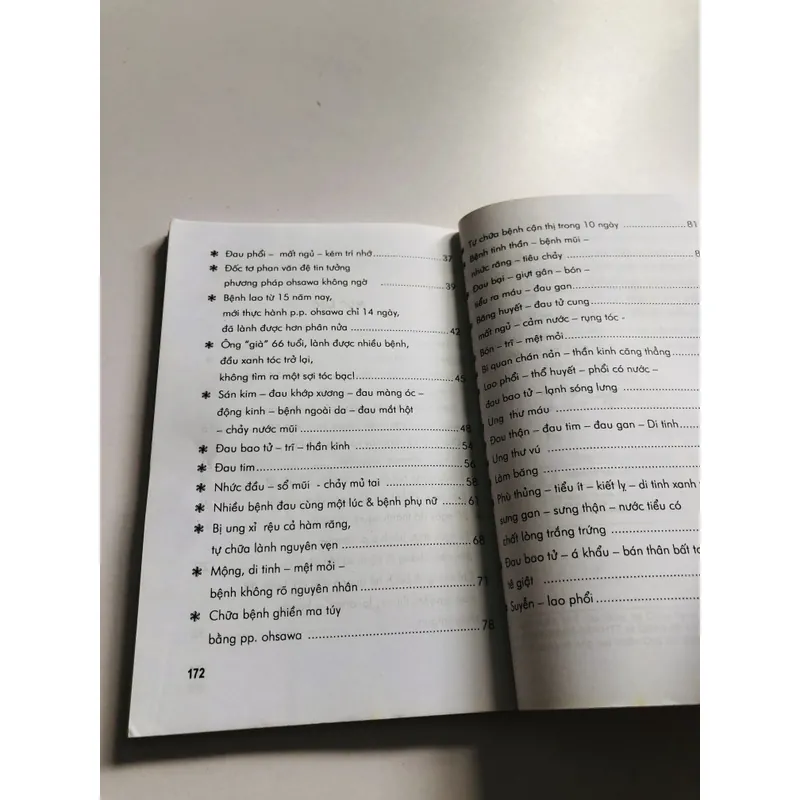 ✱ Đau phổi – mất ngủ – kém trí nhớ ........................ 37
✱ Đốc tơ phan văn đệ tin tưởng
phương pháp ohsawa không ngờ ........................ 39
✱ Bệnh lao từ 15 năm nay,
mới thực hành p.p. ohsawa chỉ 14 ngày,
đã lành được hơn phân nửa ........................ 42
✱ Ông "già" 66 tuổi, lành được nhiều bệnh,
đầu xanh tóc trở lại,
không tìm ra một sợi tóc bạc! ........................ 45
✱ Sán kim – đau khớp xương – đau màng óc –
động kinh – bệnh ngoài da – đau mắt hột
– chảy nước mũi ........................ 48
✱ Đau bao tử – trĩ – thần kinh ........................ 54
✱ Đau tim ........................ 56
✱ Nhức đầu – sổ mũi - chảy mủ tai ........................ 58
✱ Nhiều bệnh đau cùng một lúc & bệnh phụ nữ ........ 61
✱ Bị ung xỉ rệu cả hàm răng,
tự chữa lành nguyên vẹn ........................ 68
✱ Mộng, di tinh – mệt mỏi –
bệnh không rõ nguyên nhân ........................ 71
✱ Chữa bệnh ghiền ma túy
bằng pp. ohsawa ........................ 78
172
Tự chữa bệnh cận thị trong 10 ngày ........................ 81
Bệnh tinh thần – bệnh mũi –
nhức răng – tiêu chảy ........................ 8
Đau bại – giựt gân – bón –
tiểu ra máu – đau gan ........................
Băng huyết – đau tử cung ........................
mất ngủ – cảm nước – rụng tóc -
Bón – trĩ – mệt mỏi ........................
Bi quan chán nản – thần kinh căng thẳng ............
Lao phổi – thổ huyết – phổi có nước –
đau bao tử – lạnh sóng lưng ........................
Ung thư máu ........................
Đau thận – đau tim – đau gan – Di tinh ............
Ung thư vú ........................
Lâm băng ........................
Phù thủng – tiểu ít – kiết lỵ – di tinh xanh
sưng gan – sưng thận – nước tiểu có
chất lòng trắng trứng ........................
Đau bao tử – á khẩu – bán thân bất
tê giệt ........................
Suyễn – lao phổi ........................